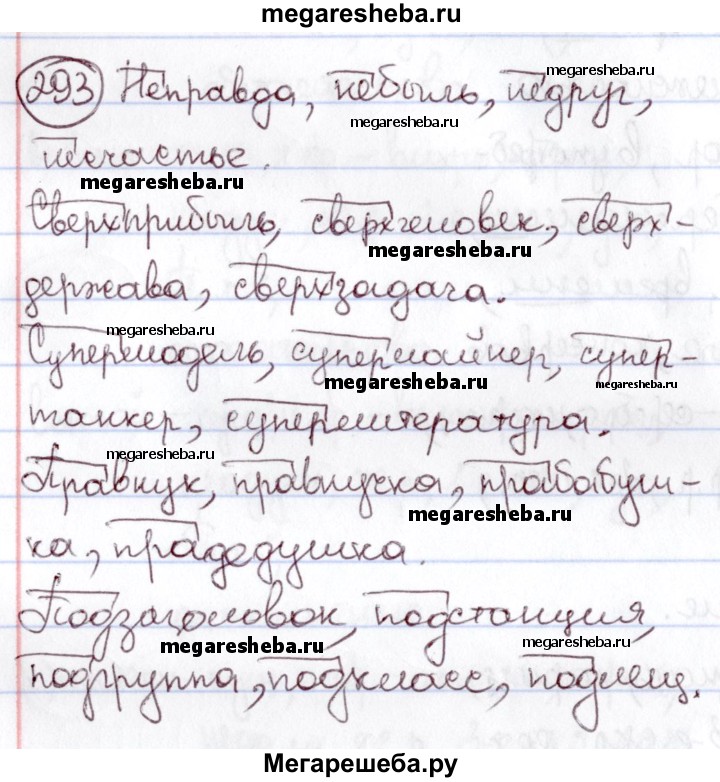 megaresheba.ru
293 Неправда, небыль, недруг,
megaresheba.ru
megaresheba.ru
несчастье.
megaresheba.ru
Сверхприбыль, сверхчеловек, сверх-
megaresheba.ru
держава, сверхзадача.
megaresheba.ru
Супермодель, суперлайнер, супер-
megaresheba.ru
megaresheba.ru
танкер, суперлитература.
megaresheba.ru
Правнук, правнучка, прабабуш-
megaresheba.ru
ка, прадедушка.
Подзаголовок, подстанция,
megaresheba.ru
megaresheba.ru
подгруппа, подкласс,
Мегарешеба.ру